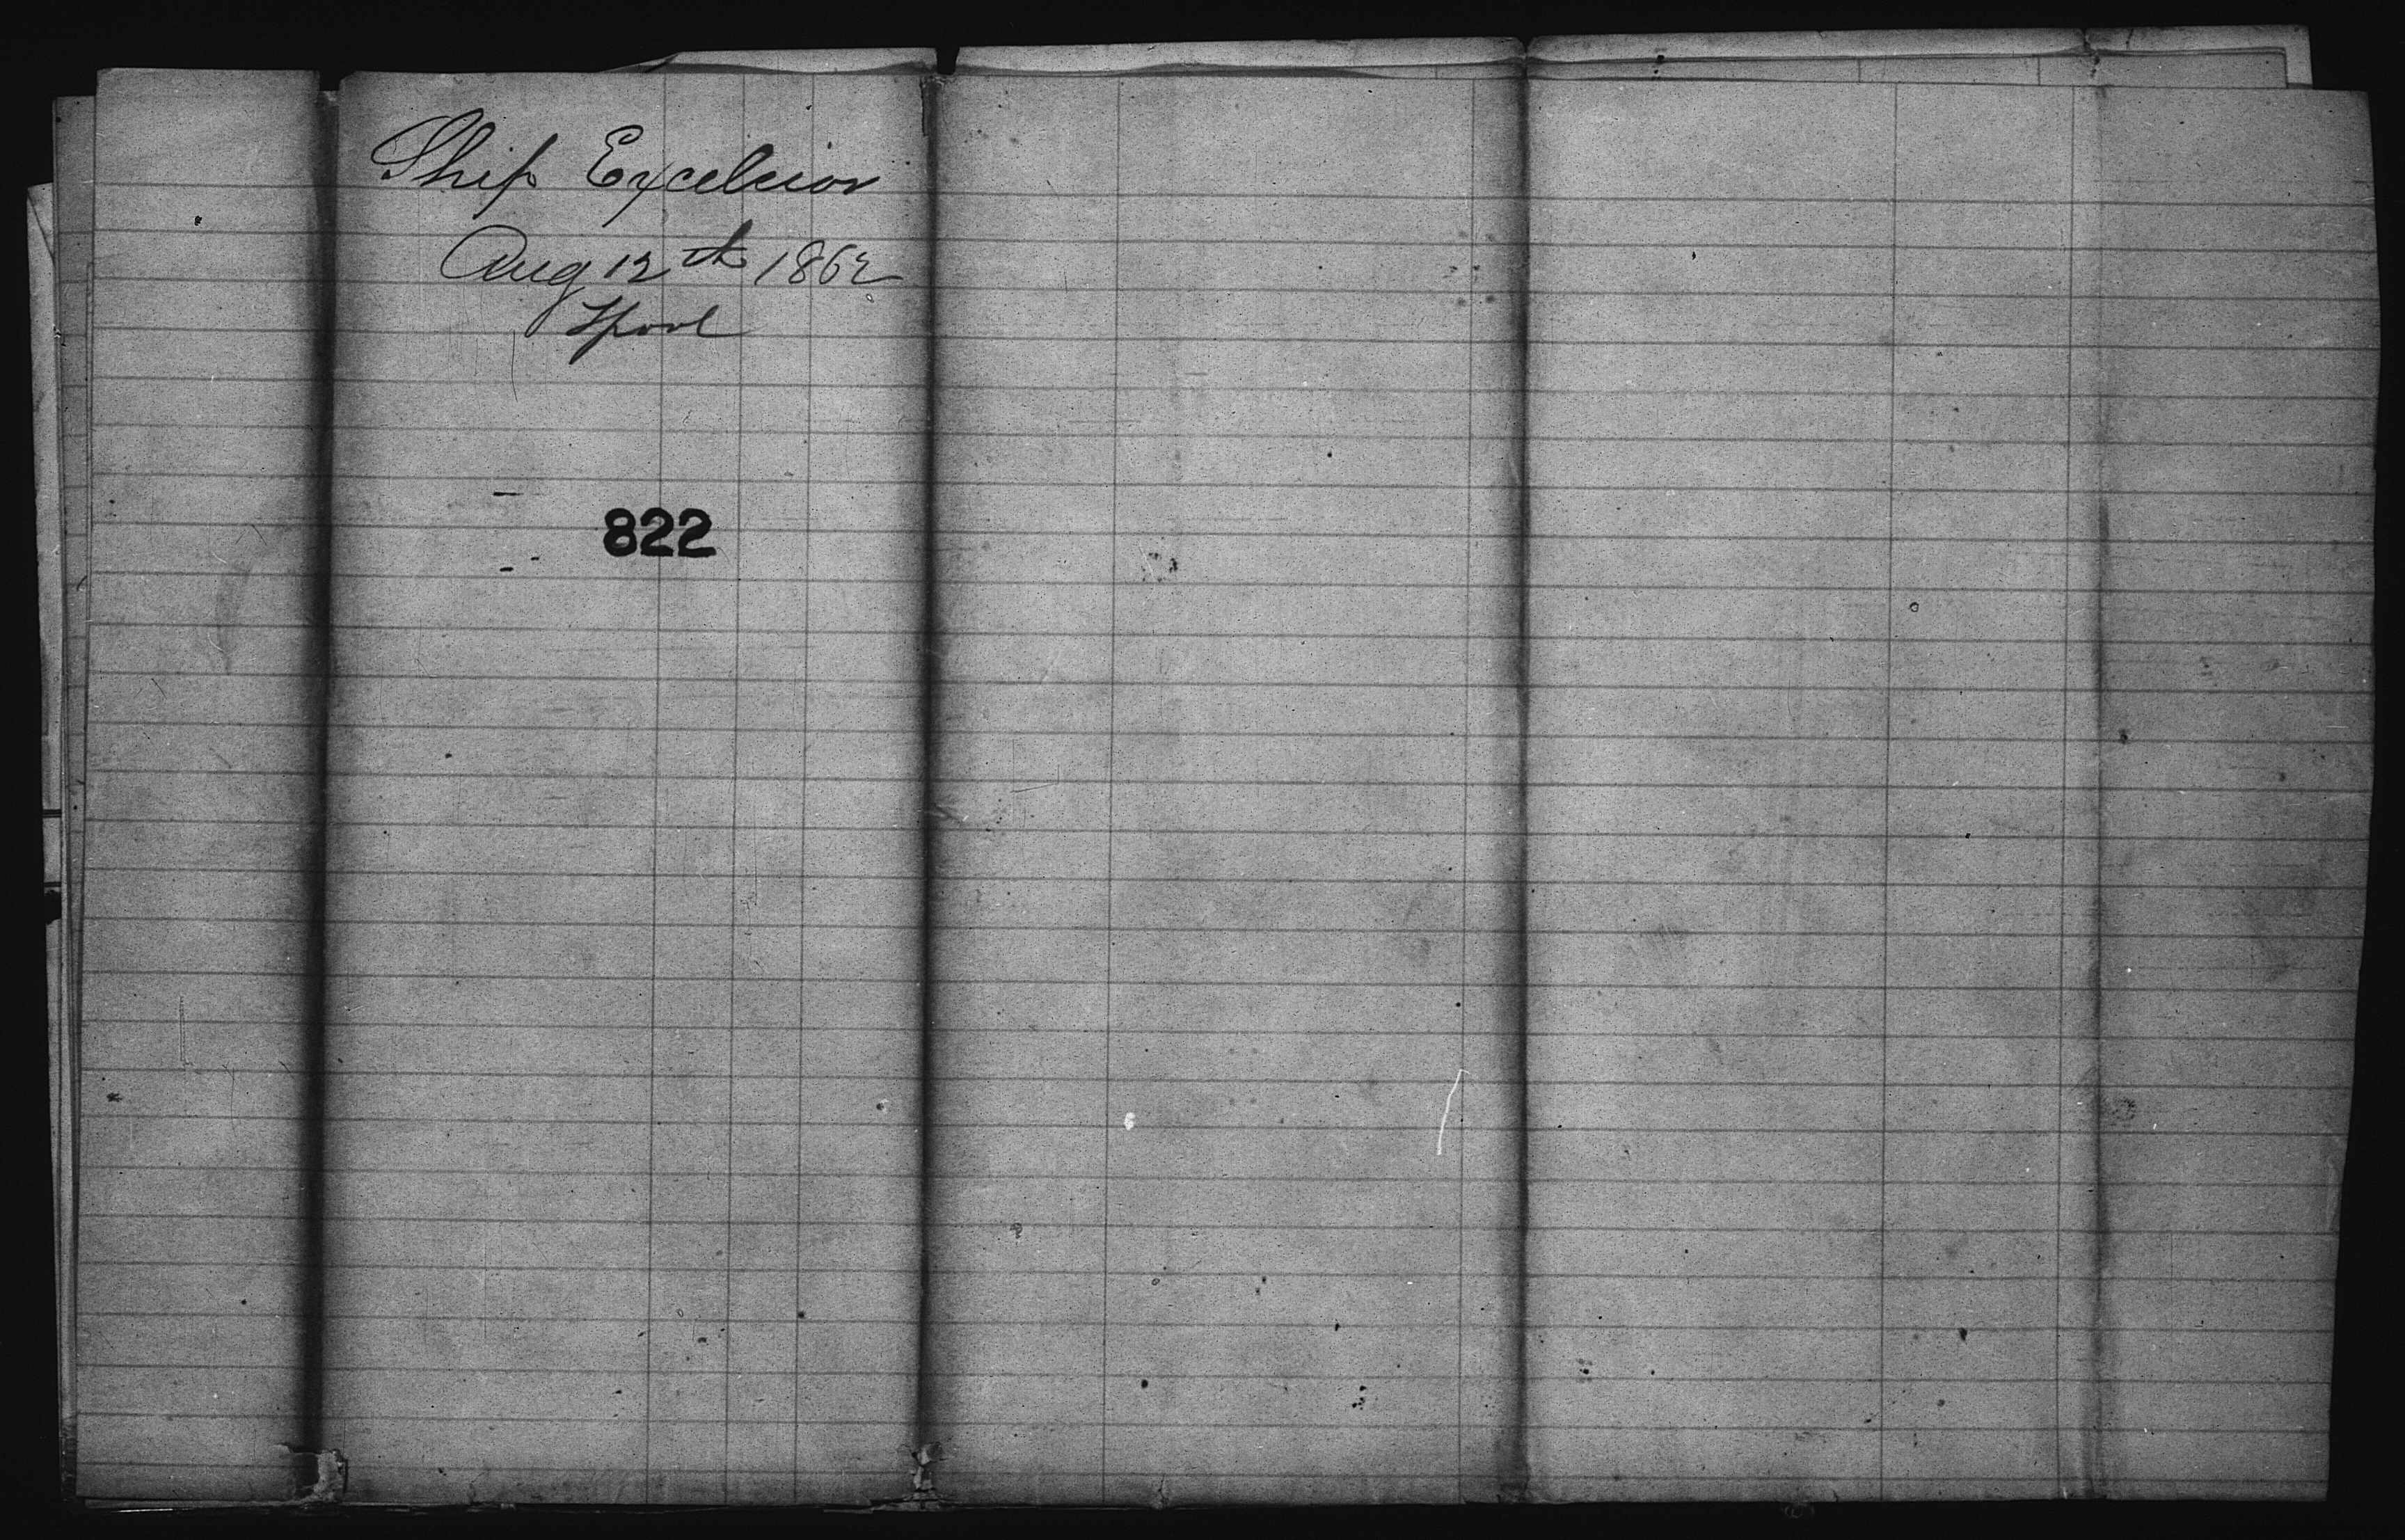 Ship Excelsior
Aug 12th 1862
Lpool
822